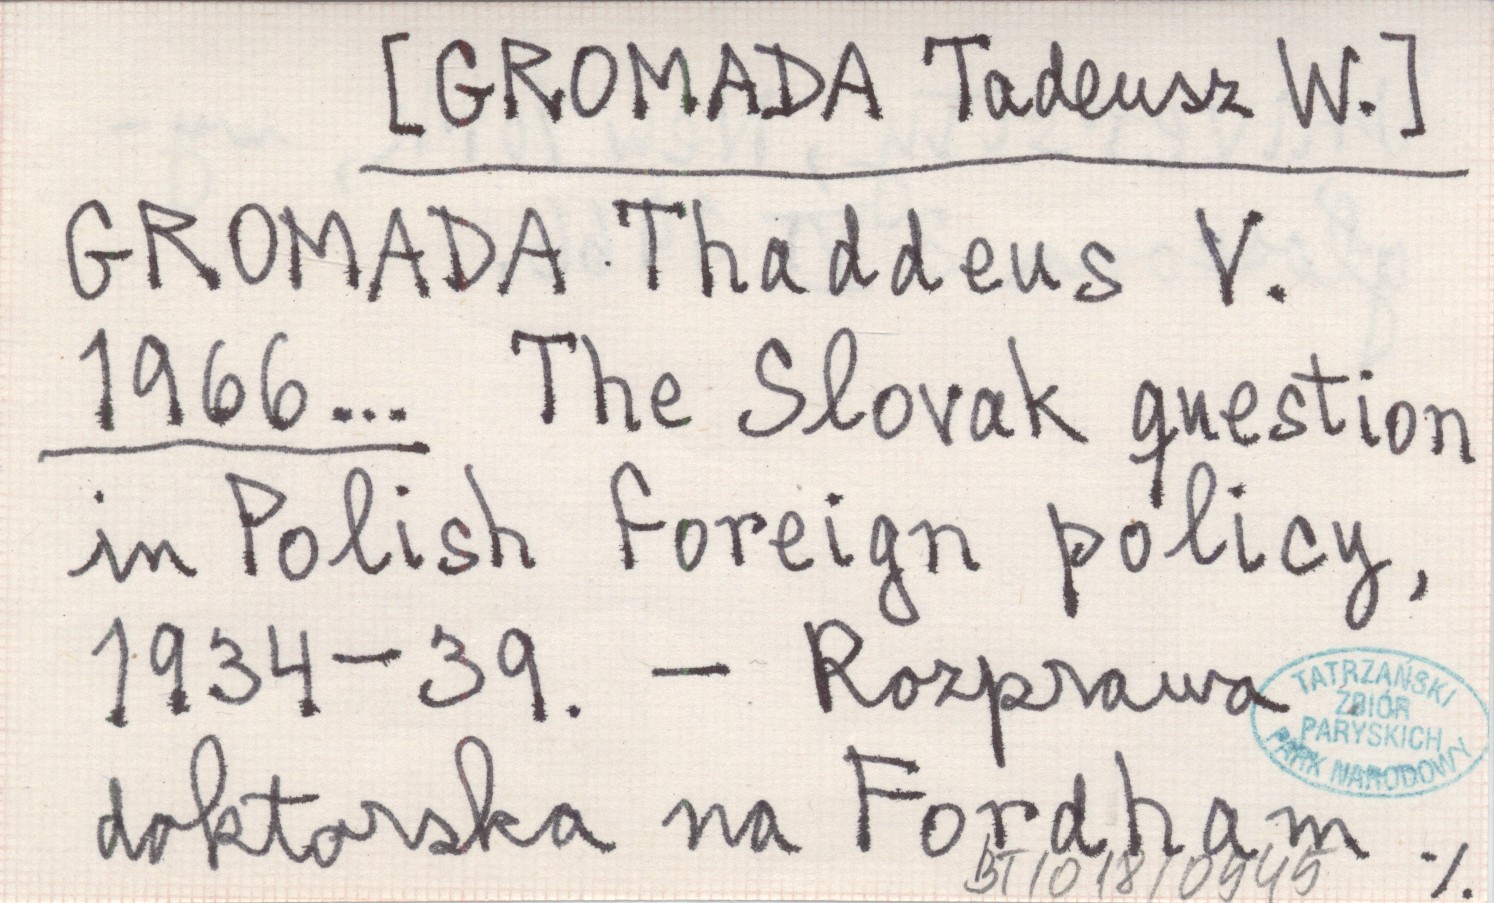 [GROMADA Tadeusz W.]
GROMADA Thaddeus V.
1966... The Slovak question
in Polish foreign policy,
1934-39. - Rozprawa
doktorska na Fordham ./.
TATRZAŃSKI
ZBIÓR
PARYSKICH
PARK NARODOWY
BT/018/0945